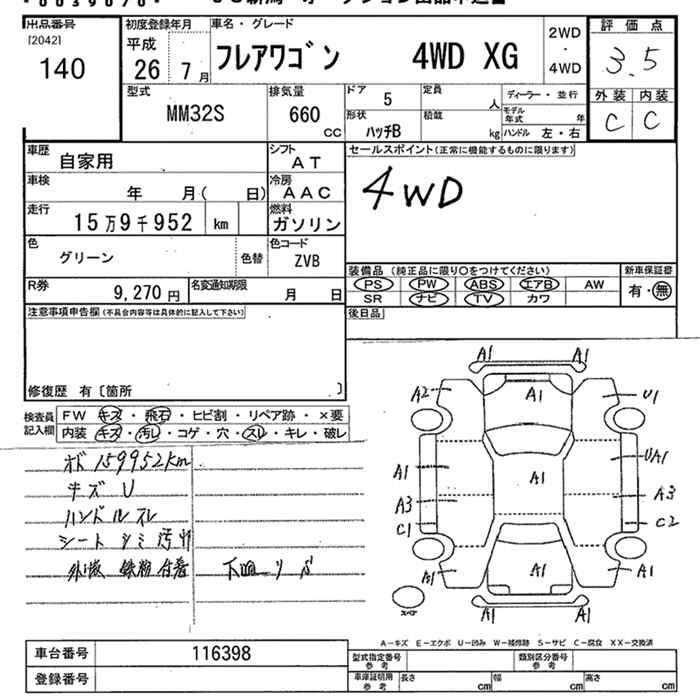 出品番号
[2042]
140
初度登録年月
平成
26年 7月
車名・グレード
フレアワゴン 4WD XG
2WD
・
4WD
評価点
3.5
外装 内装
C C
型式
MM32S
排気量
660
CC
ドア 5
定員 人
ディーラー・並行
形状
ハッチB
積載 kg
モデル年式 年
ハンドル 左・右
車歴
自家用
シフト
AT
車検
年 月( 日)
冷房
AAC
走行
15万9千952 km
燃料
ガソリン
色
グリーン
色替
色コード
ZVB
R券
9,270円
名変通知期限
月 日
セールスポイント(正常に機能するものに限ります)
4WD
装備品 (純正品に限り○をつけてください)
PS PW ABS エアB AW
SR ナビ TV カワ
新車保証書
有・無
後日品
注意事項申告欄(不具合内容等は具体的に記入して下さい)
修復歴 有〔箇所 〕
検査員記入欄
FW キズ・飛石・ヒビ割・リペア跡・×要
内装 キズ・汚レ・コゲ・穴・スレ・キレ・破レ
オド 159952km
キズ U
ハンドル スレ
シート シミ 汚レ
外板 鉄粉 付着 下回り サビ
A1 A1
A2 A1 U1
A1 A1 UA1
A3 A3
C1 C2
A1 A1 A1
スペア
A1 A1
A-キズ E-エクボ U-凹み W-補修跡 S-サビ C-腐食 XX-交換済
車台番号
116398
登録番号
型式指定番号
参考
類別区分番号
参考
車庫証明用
参考
長さ cm 幅 cm 高さ cm